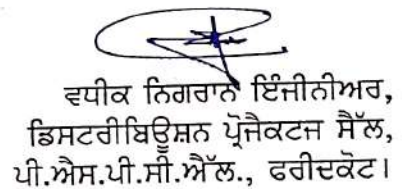 ਵਧੀਕ ਨਿਗਰਾਨ ਇੰਜੀਨੀਅਰ,
ਡਿਸਟਰੀਬਿਊਸ਼ਨ ਪ੍ਰੋਜੈਕਟਜ ਸੈੱਲ,
ਪੀ.ਐਸ.ਪੀ.ਸੀ.ਐੱਲ., ਫਰੀਦਕੋਟ।